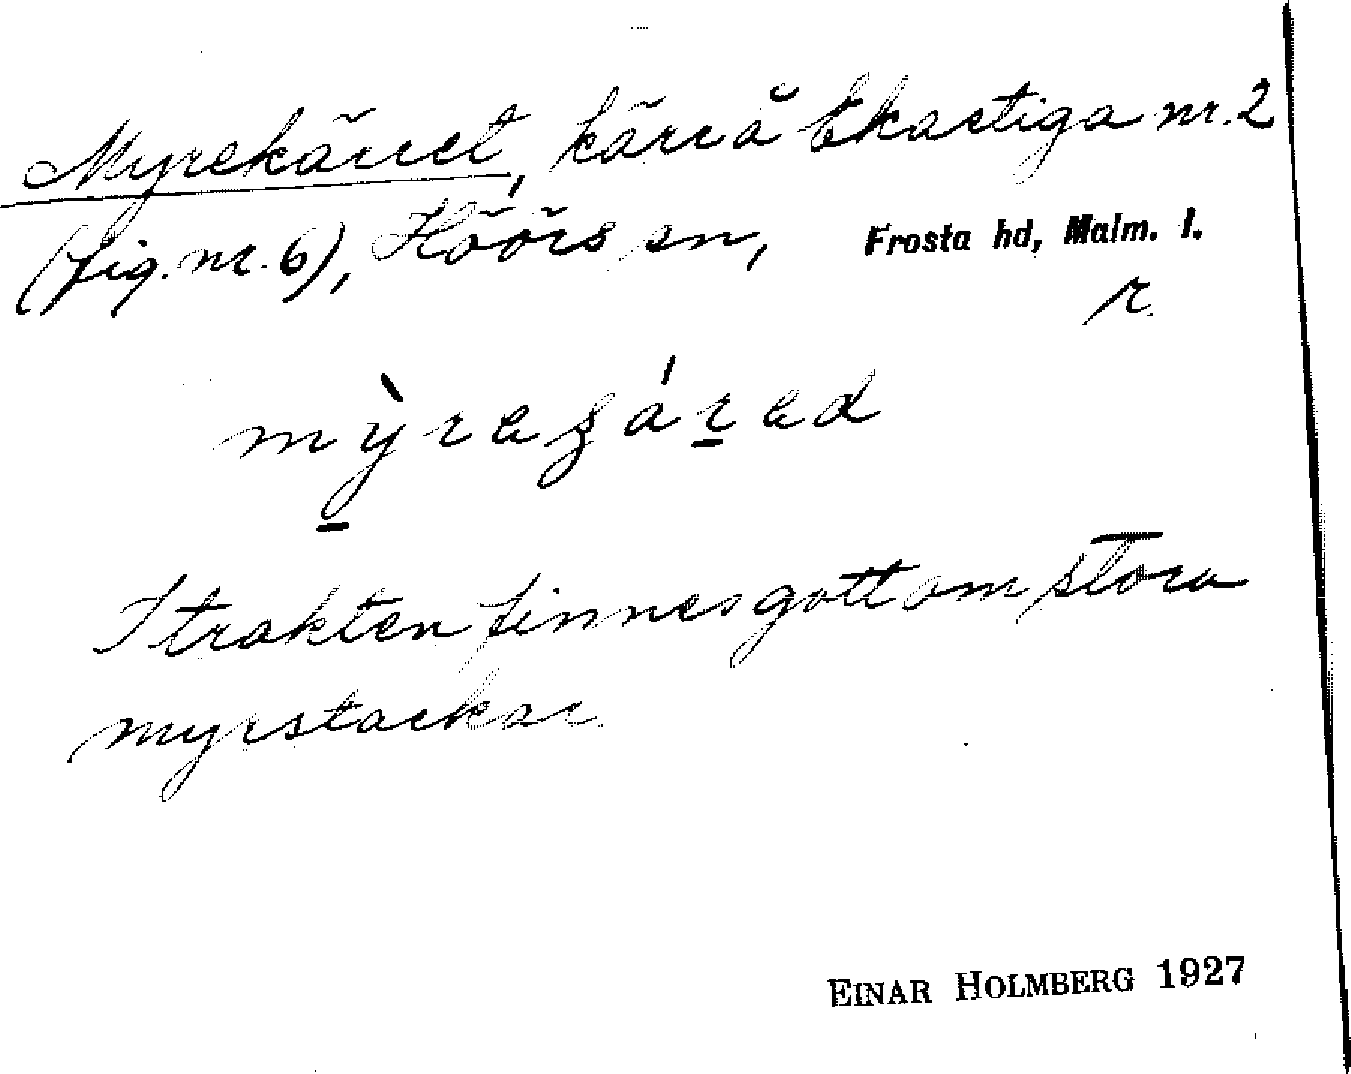 Myrekärret, kärr å Ekastiga nr. 2
(fig. nr. 6), Höörs sn, Frosta hd, Malm. l.
r.
I trakten finnes gott om stora
myrstackar.
EINAR HOLMBERG 1927